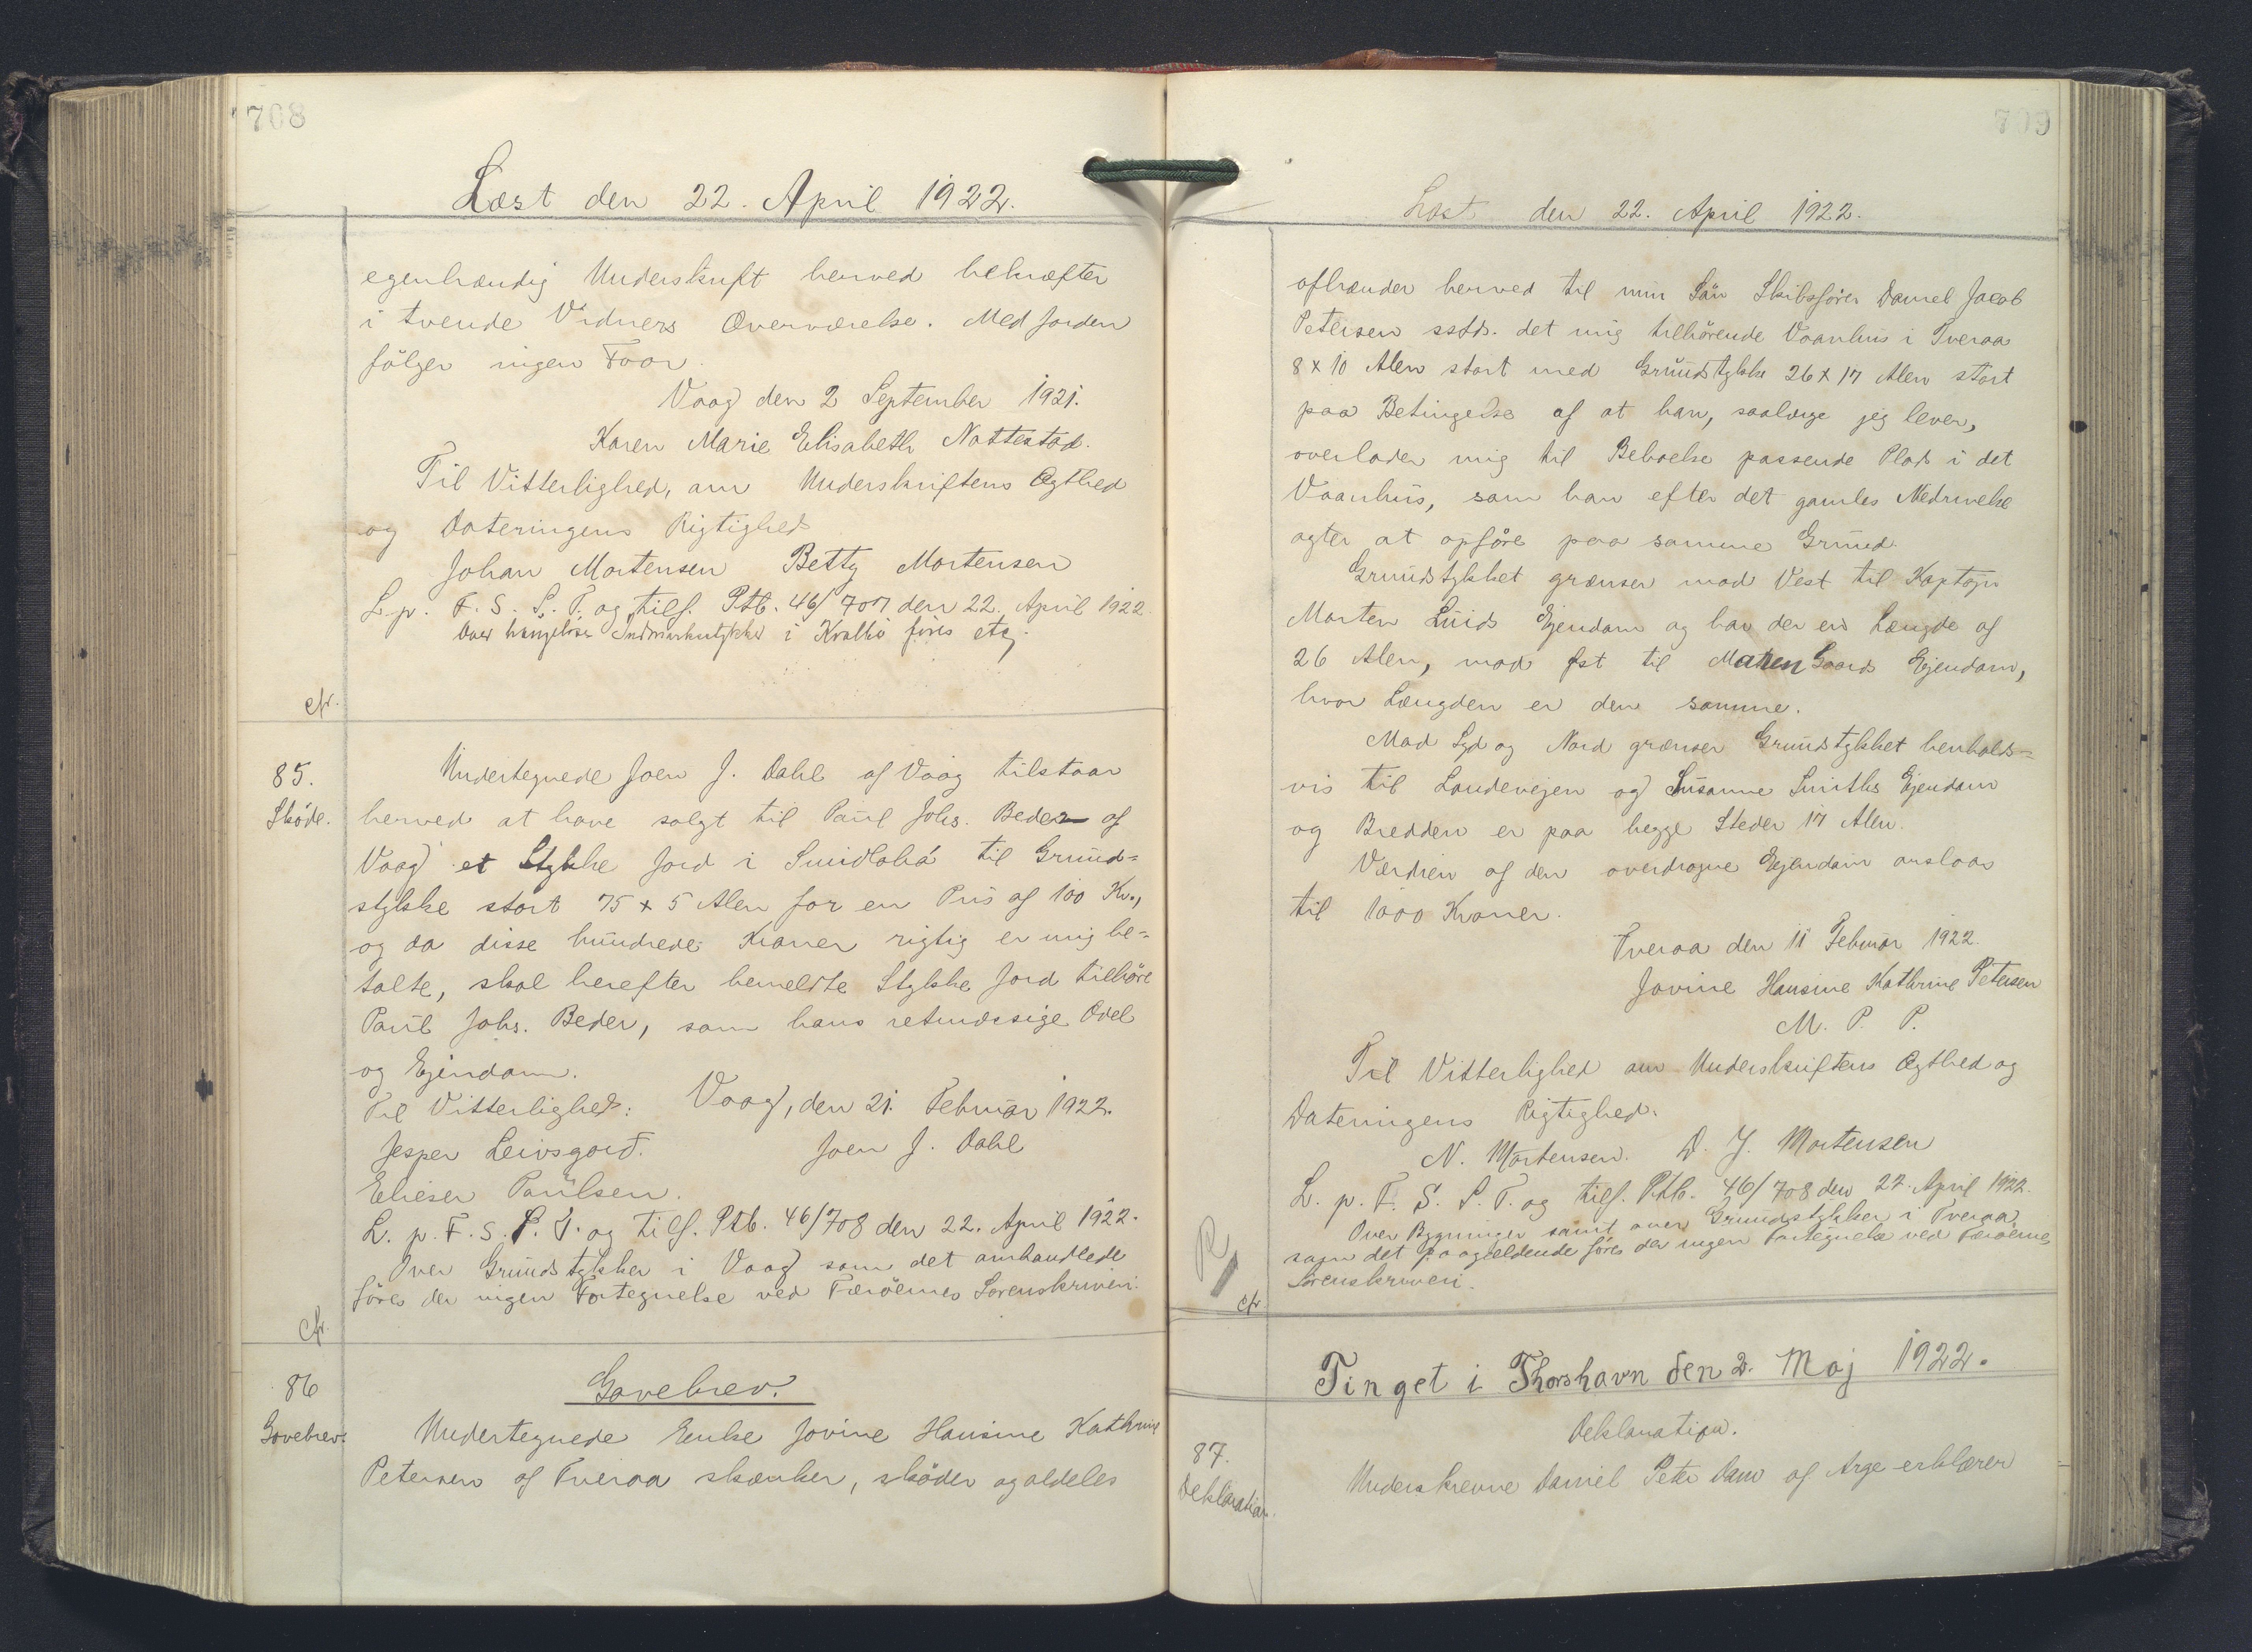 708
Læst den 22. April 1922.
egenhændig Underskrift herved bekræfter
i tvende Vidners Overværelse. Med Jorden
følger ingen Foor.
Vaag den 2 September 1921.
Karen Marie Elisabeth Nattestad.
Til Vitterlighed, om Underskriftens Ægthed
og Dateringens Rigtighed
Johan Mortensen Betty Mortensen
L. p. F. S. S. T. og tilf. Ptb. 46/707 den 22. April 1922.
Over Indmarkstykker i føres etc.
cfr.
85.
Skøde.
Undertegnede Joen J. Dahl af Vaag tilstaar
herved at have solgt til Paul Johs. Beder af
Vaag et Stykke Jord i til Grund=
stykke stort 75 x 5 Alen for en Pris af 100 Kr.,
og da disse hundrede Kroner rigtig er mig be=
talte, skal herefter bemeldte Stykke Jord tilhøre
Paul Johs. Beder, som hans retmæssige Odel
og Ejendom.
Til Vitterlighed: Vaag, den 21. Februar 1922.
Jesper Leivsgard. Joen J. Dahl
Elieser Paulsen.
L. p. F. S. S. T. og tilf. Ptb. 46/708 den 22. April 1922.
Over Grundstykker i Vaag som det omhandlede
føres der ingen Fortegnelse ved Færøernes Sorenskriveri.
cfr.
86
Gavebrev.
Gavebrev.
Undertegnede Enke Jovine Hansine Kathrine
Petersen af Tveraa skænker, skøder og aldeles
709
Læst den 22. April 1922.
afhænder herved til min Søn Skibsfører Daniel Jacob
Petersen sstds. det mig tilhørende Vaanhus i Tveraa
8 x 10 Alen stort med Grundstykke 26 x 17 Alen stort
paa Betingelse af at han, saalænge jeg lever,
overlader mig til Beboelse passende Plads i det
Vaanhus, som han efter det gamles Nedrivelse
agter at opføre paa samme Grund.
Grundstykket grænser mod Vest til Kaptajn
Morten Luids Ejendom og har der en Længde af
26 Alen, mod Øst til Maren Gaards Ejendom,
hvor Længden er den samme.
Mod Syd og Nord grænser Grundstykket henholds=
vis til Landevejen og Susanne Smiths Ejendom
og Bredden er paa begge Steder 17 Alen.
Værdien af den overdragne Ejendom anslaas
til 1000 Kroner.
Tveraa den 11 Februar 1922.
Jovine Hansine Kathrine Petersen
M. P. P.
Til Vitterlighed om Underskriftens Ægthed og
Dateringens Rigtighed.
N. Mortensen. D. J. Mortensen
L. p. F. S. S. T. og tilf. Ptb. 46/708 den 22. April 1922.
Over Bygninger samt over Grundstykker i Tveraa,
som det paagældende føres der ingen Fortegnelse ved Færøernes
Sorenskriveri.
R
cfr.
Tinget i Thorshavn den 2. Maj 1922.
87.
Deklaration.
Deklaration.
Underskrevne Daniel Peter Dam af Arge erklærer